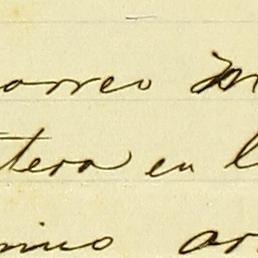 orreo M
tera en l
mino or